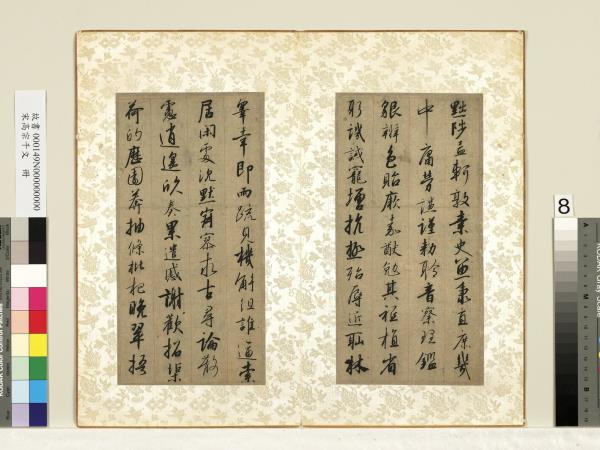 黜陟孟軻敦素史魚秉直庶幾
中庸勞謙謹勅聆音察理鑑
貌辨色貽厥嘉猷勉其祗植省
躬譏誡寵增抗極殆辱近恥林
皋幸即兩疏見機解組誰逼索
居閑處沈默寂寥求古尋論散
慮逍遙欣奏累遣慼謝歡招渠
荷的歷園莽抽條枇杷晚翠梧
故書 000149N000000000
宋高宗千文 冊
8